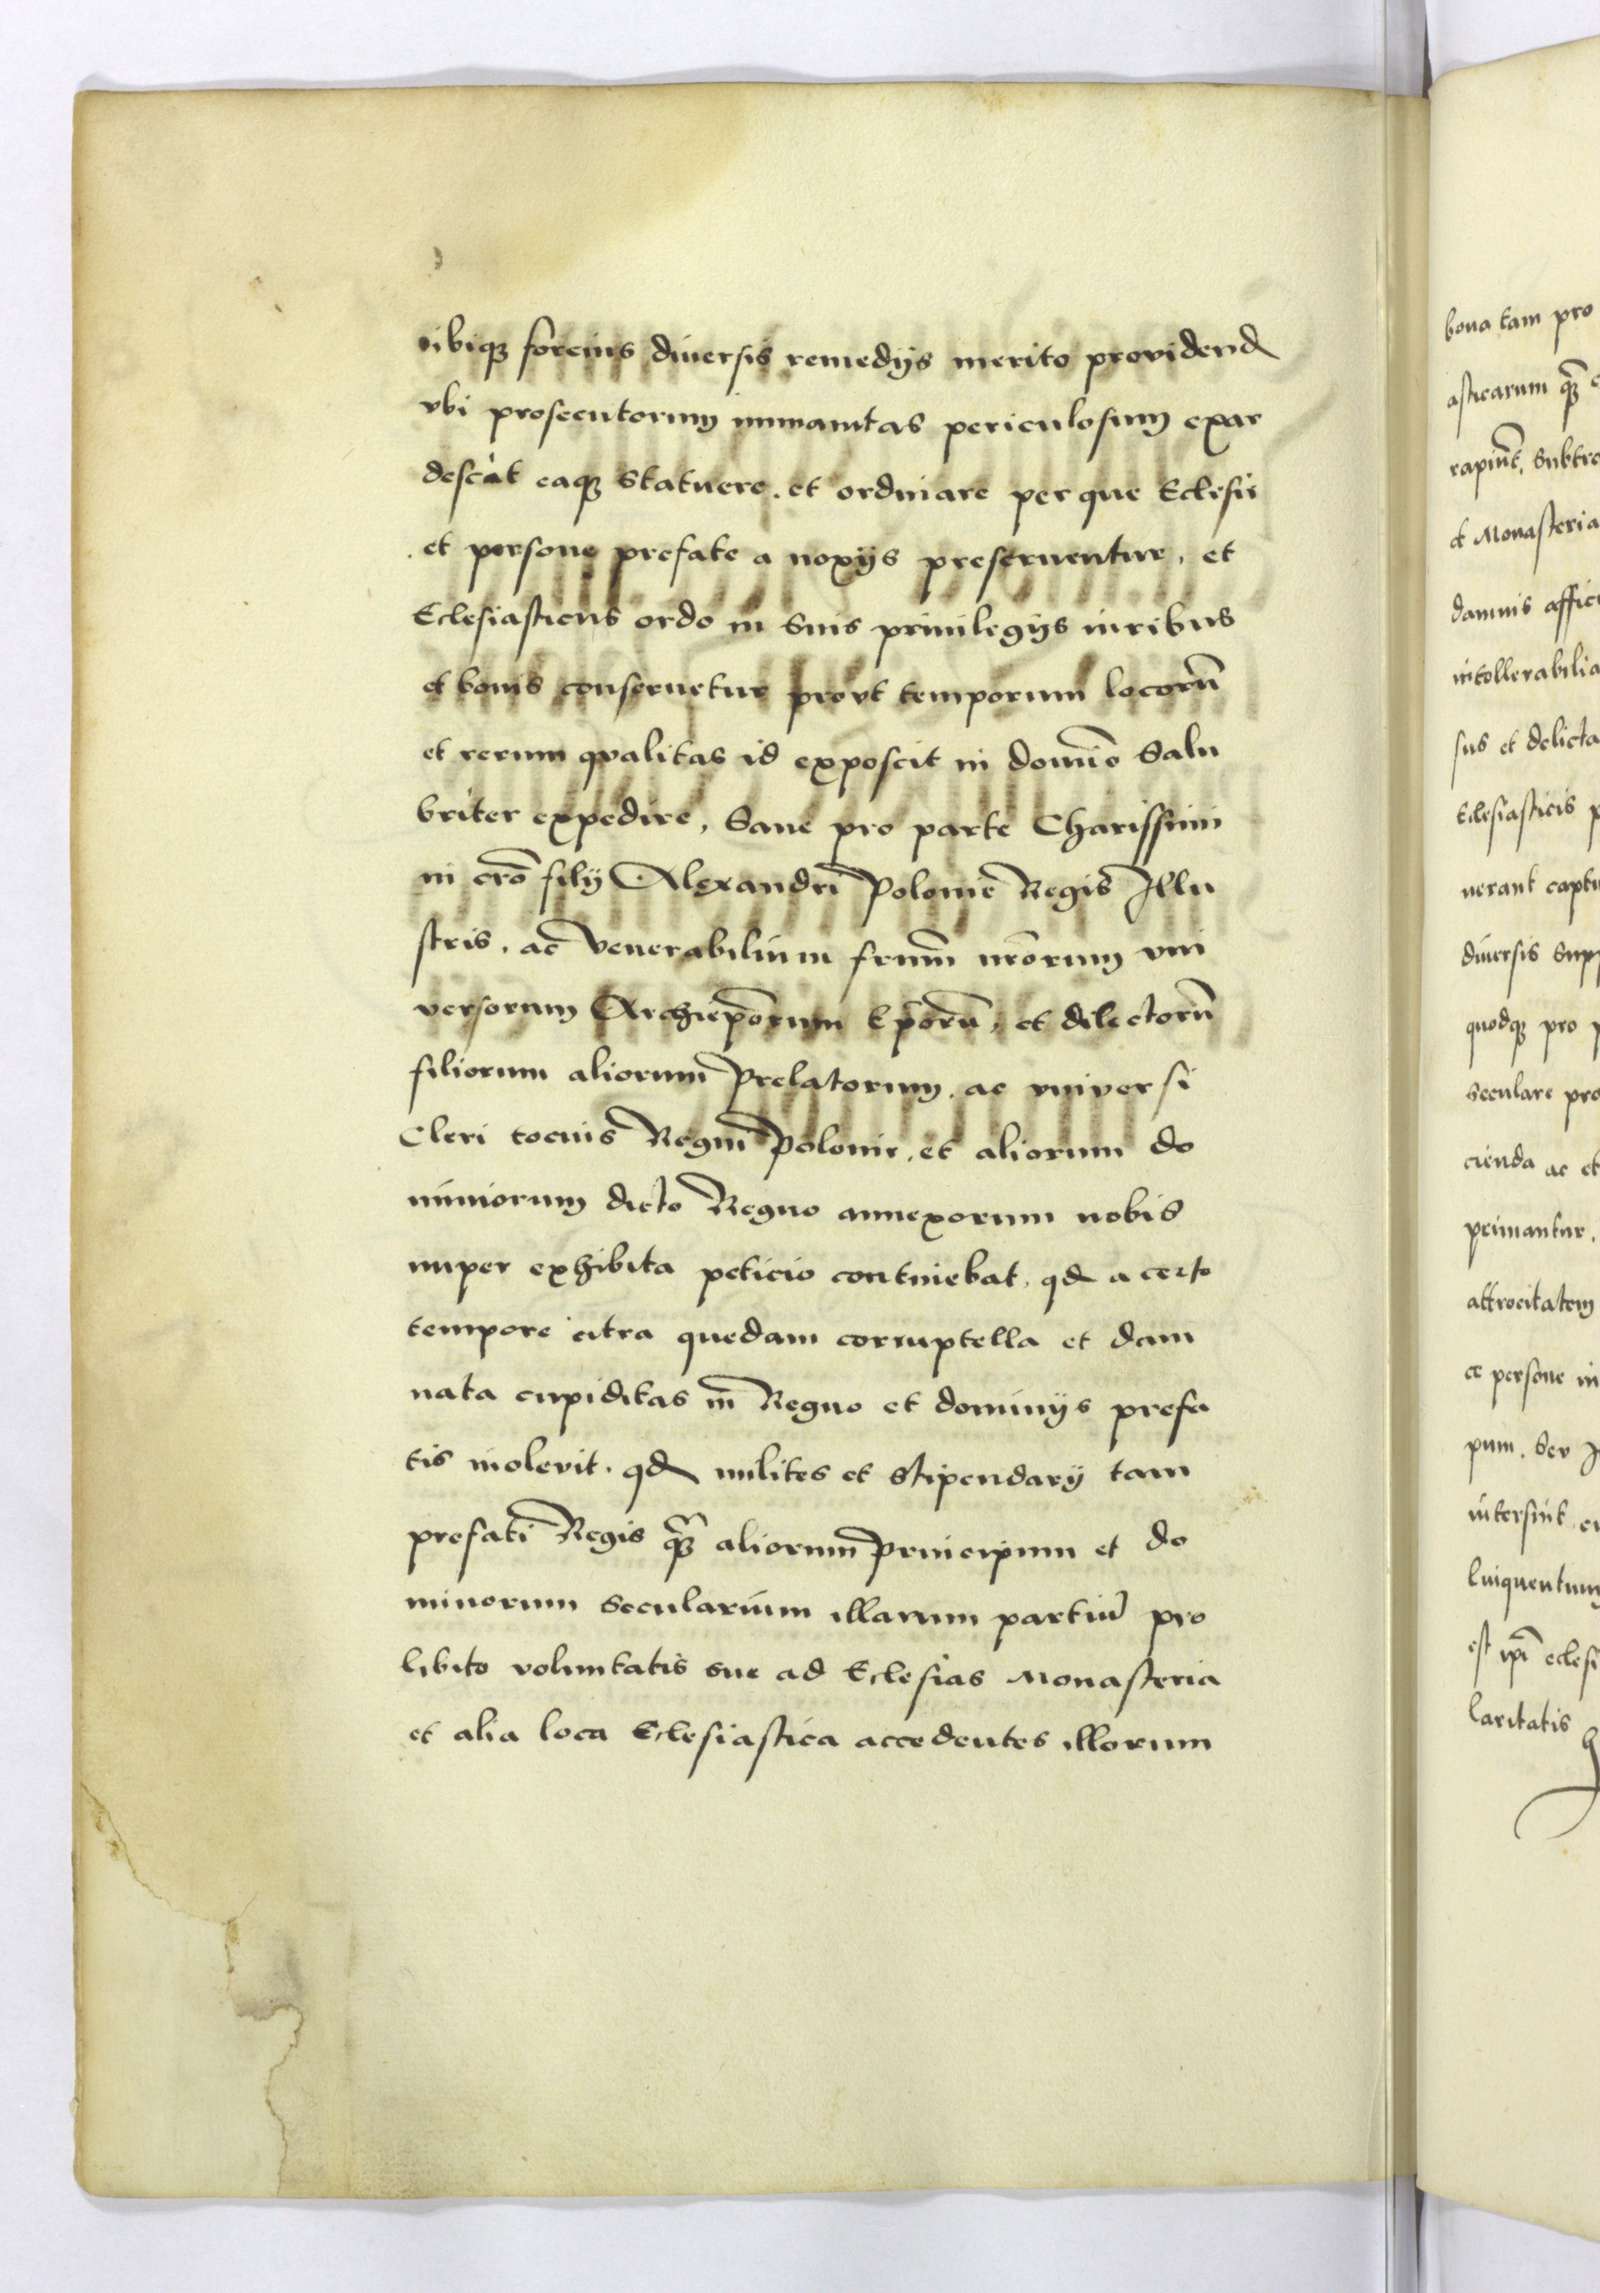 ibiqꝫ forcius diuersis remedijs merito providend
vbi prosecutorum inmanitas periculosum exar
descat eaqꝫ Statuere. et ordinare per que Eclesie
et persone prefate a noxijs preseruentur, et
Eclesiasticus ordo in Suis priuilegijs iuribus
et bonis conseruetur provt temporum locorū
et rerum qvalitas id exposcit in domīo Salu
briter expedire, Sane pro parte Charissimi
in crō filij Alexandri Polonie Regis Illu
stris. ac Venerabilium frum̄ nrōrum vni
versorum Archiep̄orum Ep̄orū, et dilectorū
filiorum aliorum Prelatorum. ac vniversi
Cleri tocius Regni Polonie. et aliorum do
miniorum dicto Regno annexorum nobis
nuper exhibita peticio continebat. qd a certo
tempore citra quedam corruptella et dam
nata cupiditas in Regno et dominijs prefa
tis inolevit. qd milites et Stipendarij tam
prefati Regis qꝫ̄ aliorum Principum et do
minorum Secularium illarum partiū pro
libito voluntatis sue ad Eclesias Monasteria
et alia loca Eclesiastica accedentes illorum
bona tam pro
asticarum qꝫ̄
rapiūt. Subtr
et Monasteria
damnis affici
intollerabilia
sus et delicta
Eclesiasticis p
uerant capt
diuersis Supp
quodqꝫ pro p
Seculare pro
cienda ac et
primantur.
attrocitatem
ce persone in
pum. Sev
intersint
linquentum
est ip̄i eclesi
laritatis